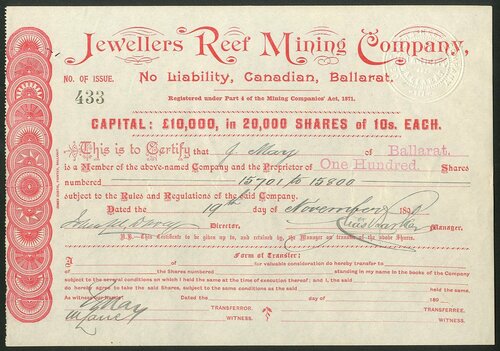 Jewellers Reef Mining Company,
NO. OF ISSUE.
433
No Liability, Canadian, Ballarat.
Registered under Part 4 of the Mining Companies' Act, 1871.
CAPITAL: £10,000, in 20,000 SHARES of 10s. EACH.
This is to Certify that J May of Ballarat.
is a Member of the above-named Company and the Proprietor of One Hundred. Shares
numbered 15701 to 15800
subject to the Rules and Regulations of the said Company.
Dated the 19th day of November 189
Director, Manager.
N.B.—This Certificate to be given up to, and retained by, the Manager on transfer of the above Shares.
Form of Transfer:
I, of for valuable consideration do hereby transfer to
of the Shares numbered standing in my name in the books of the Company
subject to the several conditions on which I held the same at the time of execution thereof; and I, the said
do hereby agree to take the said Shares, subject to the same conditions as the said held the same.
As witness our Hands! Dated the day of 189
J May TRANSFERROR. TRANSFEREE.
WITNESS. WITNESS.